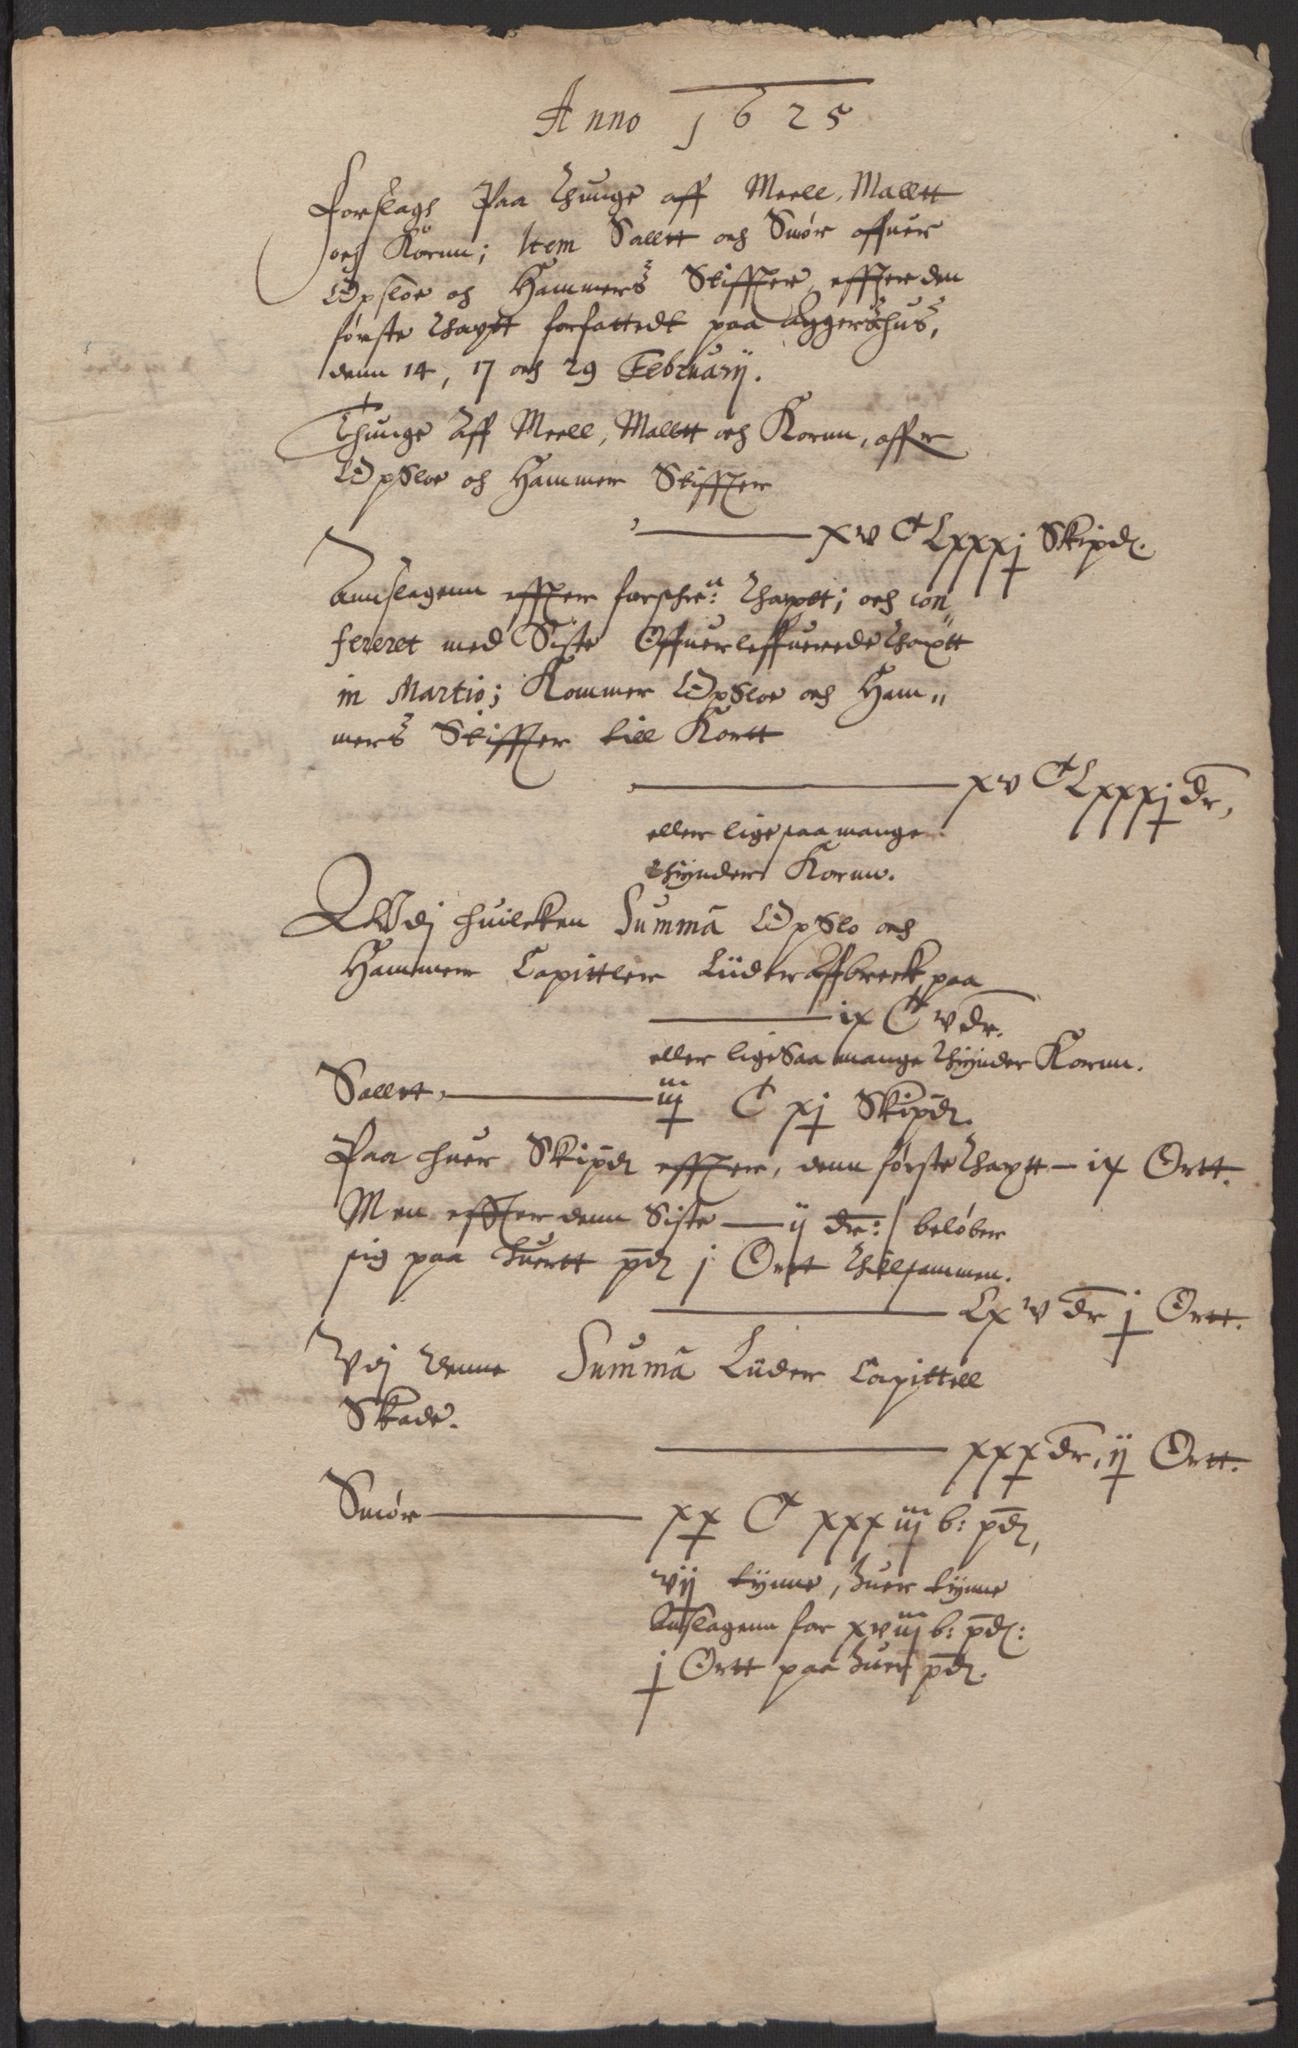 Anno 1625
Forslagh Paa Thunge aff Meell, Malltt
och Kornn; Item Salltt och Smør offuer
Opsloe och Hammers Stiffter, effter den
første Thaxtt forfattedt paa Aggershus,
denn 14, 17 och 29 Februarij.
Thunge Aff Meell, Malltt och Kornn, offr
OpSloe och Hammer Stiffter
xv C Lxxxj Skipd.
Annslagenn effter forschr: Thaxtt; och con
fereret med Siste Offuerleffuerede Thaxtt
in Martio; Kommer OpSloe och Ham"
mers Stiffter till Kortt
xv C Lxxxj dr,
eller lige saa mange
thynder Kornn.
Wdj huilcken Summa OpSlo och
Hammer Capittler Lider Affbreck paa
ix C v dr.
eller lige Saa mange Thynder Kornn.
Salltt, iiij C xj Skipd.
Paa huer Skipd effter, denn første Thaxtt - ix Ortt.
Men effter denn Siste - ij dr: / beløber
sig paa huertt pd j Ortt Thilsammen.
Lx v dr j Ortt.
Vdj denne Summa Lider Capittell
Skade.
xxx dr, ij Ortt.
Smør xx C xxxiiij b: pd,
vij tynne, huer tynne
Anslagenn for xviiij b: pd:
j Ortt paa huer pd.